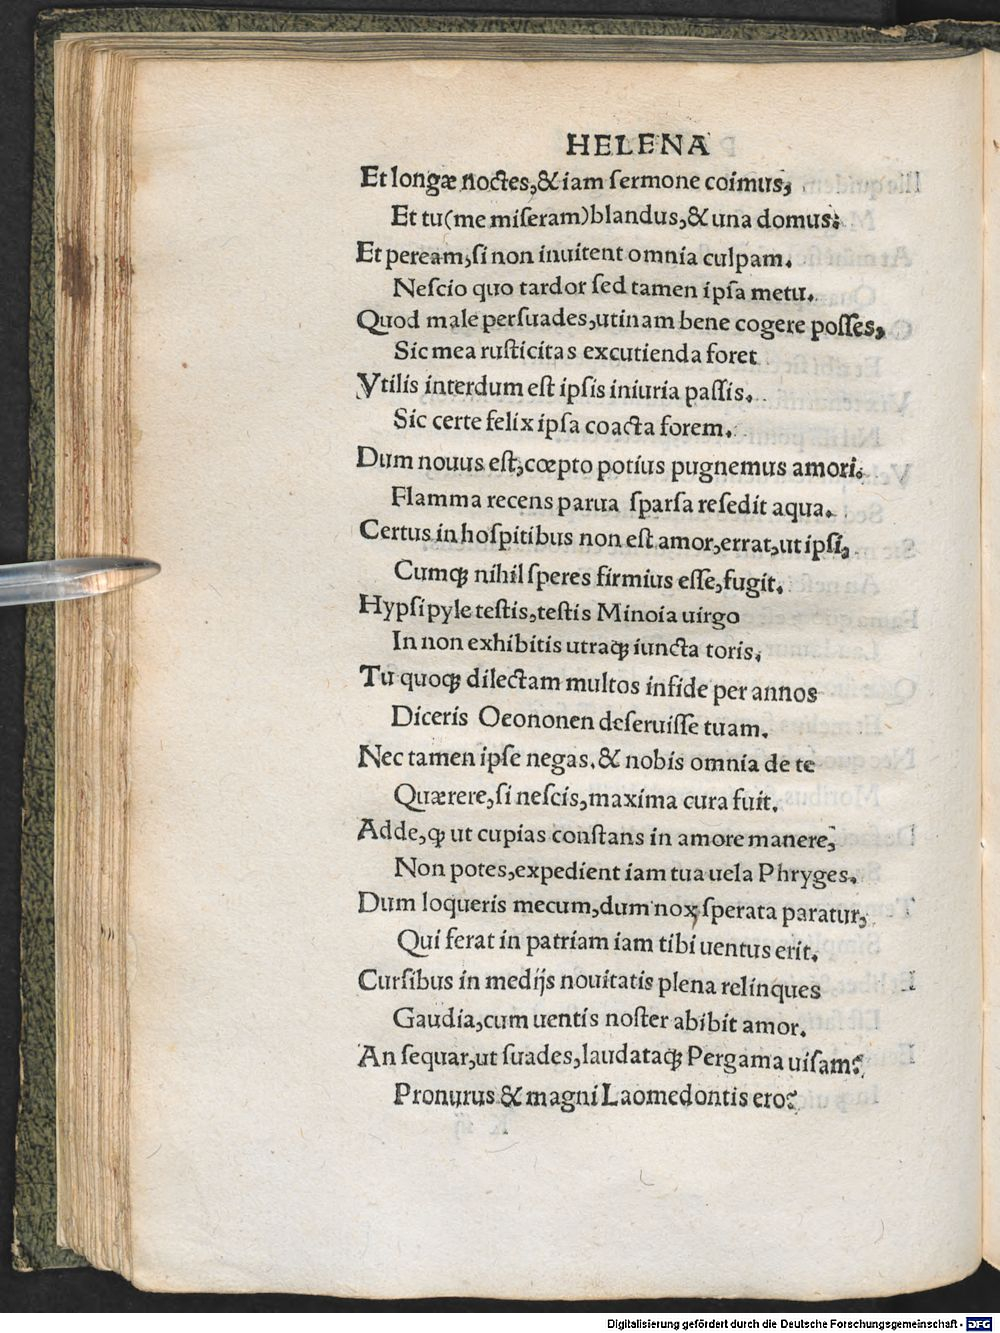 HELENA
Et longæ noctes,&iam ſermone coimus,
Et tu(me miſeram)blandus,&una domus:
Et peream,ſi non inuitent omnia culpam.
Neſcio quo tardor ſed tamen ipſa metu.
Quod male perſuades,utinam bene cogere poſſes,
Sic mea ruſticitas excutienda foret
Vtilis interdum eſt ipſis iniuria paſſis.
Sic certe felix ipſa coacta forem.
Dum nouus eſt,cœpto potius pugnemus amori.
Flamma recens parua ſparſa reſedit aqua.
Certus in hoſpitibus non eſt amor,errat,ut ipſi,
Cumqꝫ nihil ſperes firmius eſſe,fugit.
Hypſipyle teſtis,teſtis Minoia uirgo
In non exhibitis utraqꝫ iuncta toris.
Tu quoqꝫ dilectam multos infide per annos
Diceris Oeononen deſeruiſſe tuam.
Nec tamen ipſe negas.& nobis omnia de te
Quærere,ſi neſcis,maxima cura fuit.
Adde,ꝙ ut cupias conſtans in amore manere,
Non potes,expedient iam tua uela Phryges.
Dum loqueris mecum,dum nox ſperata paratur,
Qui ferat in patriam iam tibi uentus erit.
Curſibus in medijs nouitatis plena relinques
Gaudia,cum uentis noſter abibit amor.
An ſequar,ut ſuades,laudataqꝫ Pergama uiſam?
Pronurus & magni Laomedontis ero?
Digitalisierung gefördert durch die Deutsche Forschungsgemeinschaft - DFG